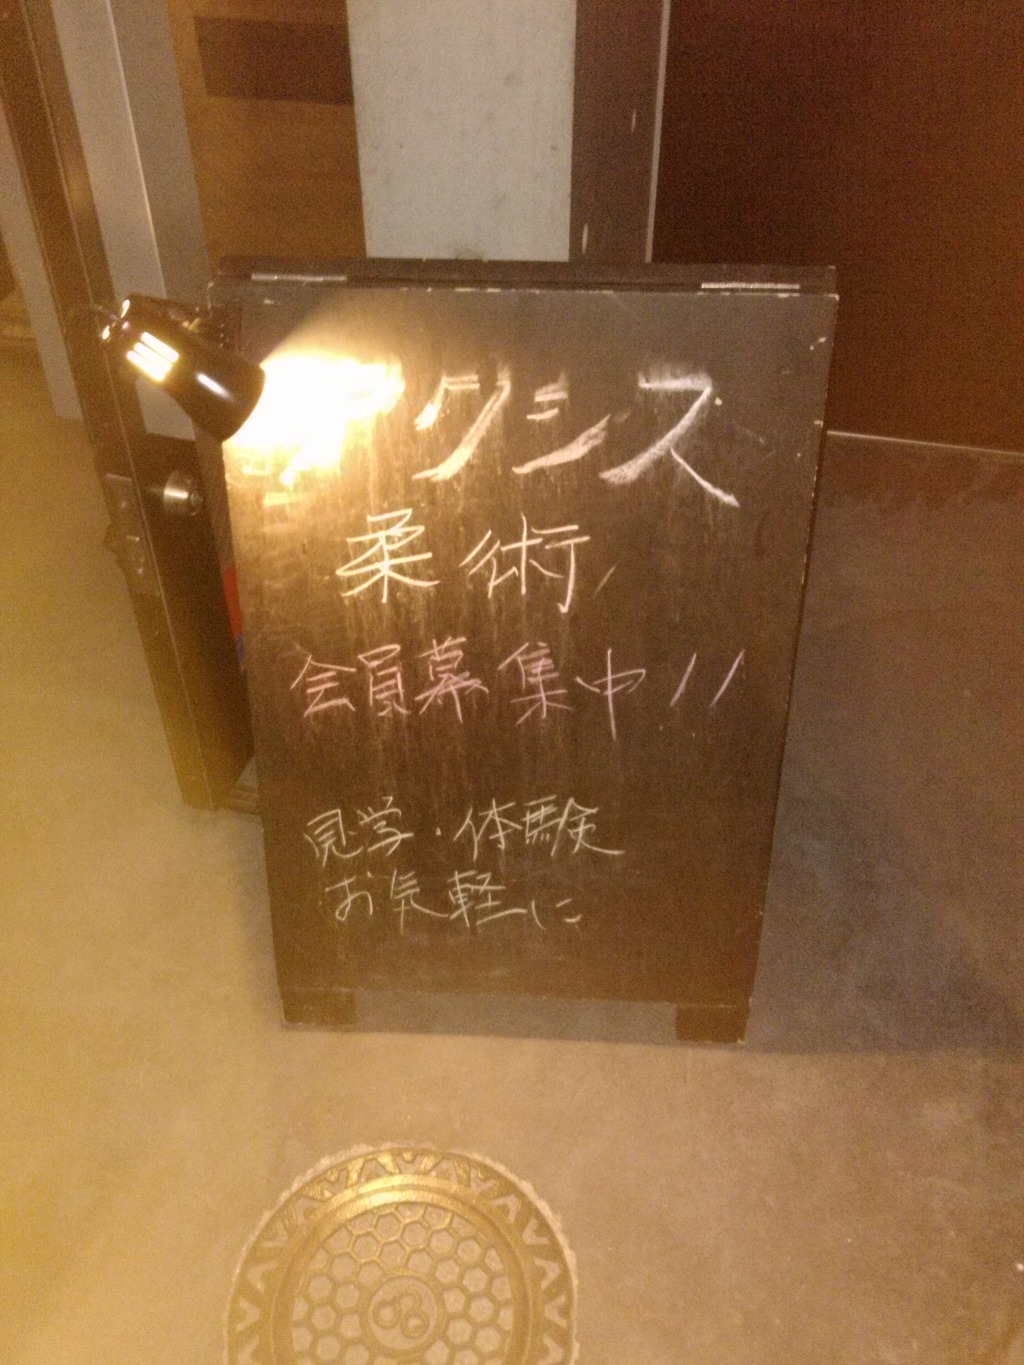 アクシス
柔術
会員募集中!!
見学・体験
お気軽に